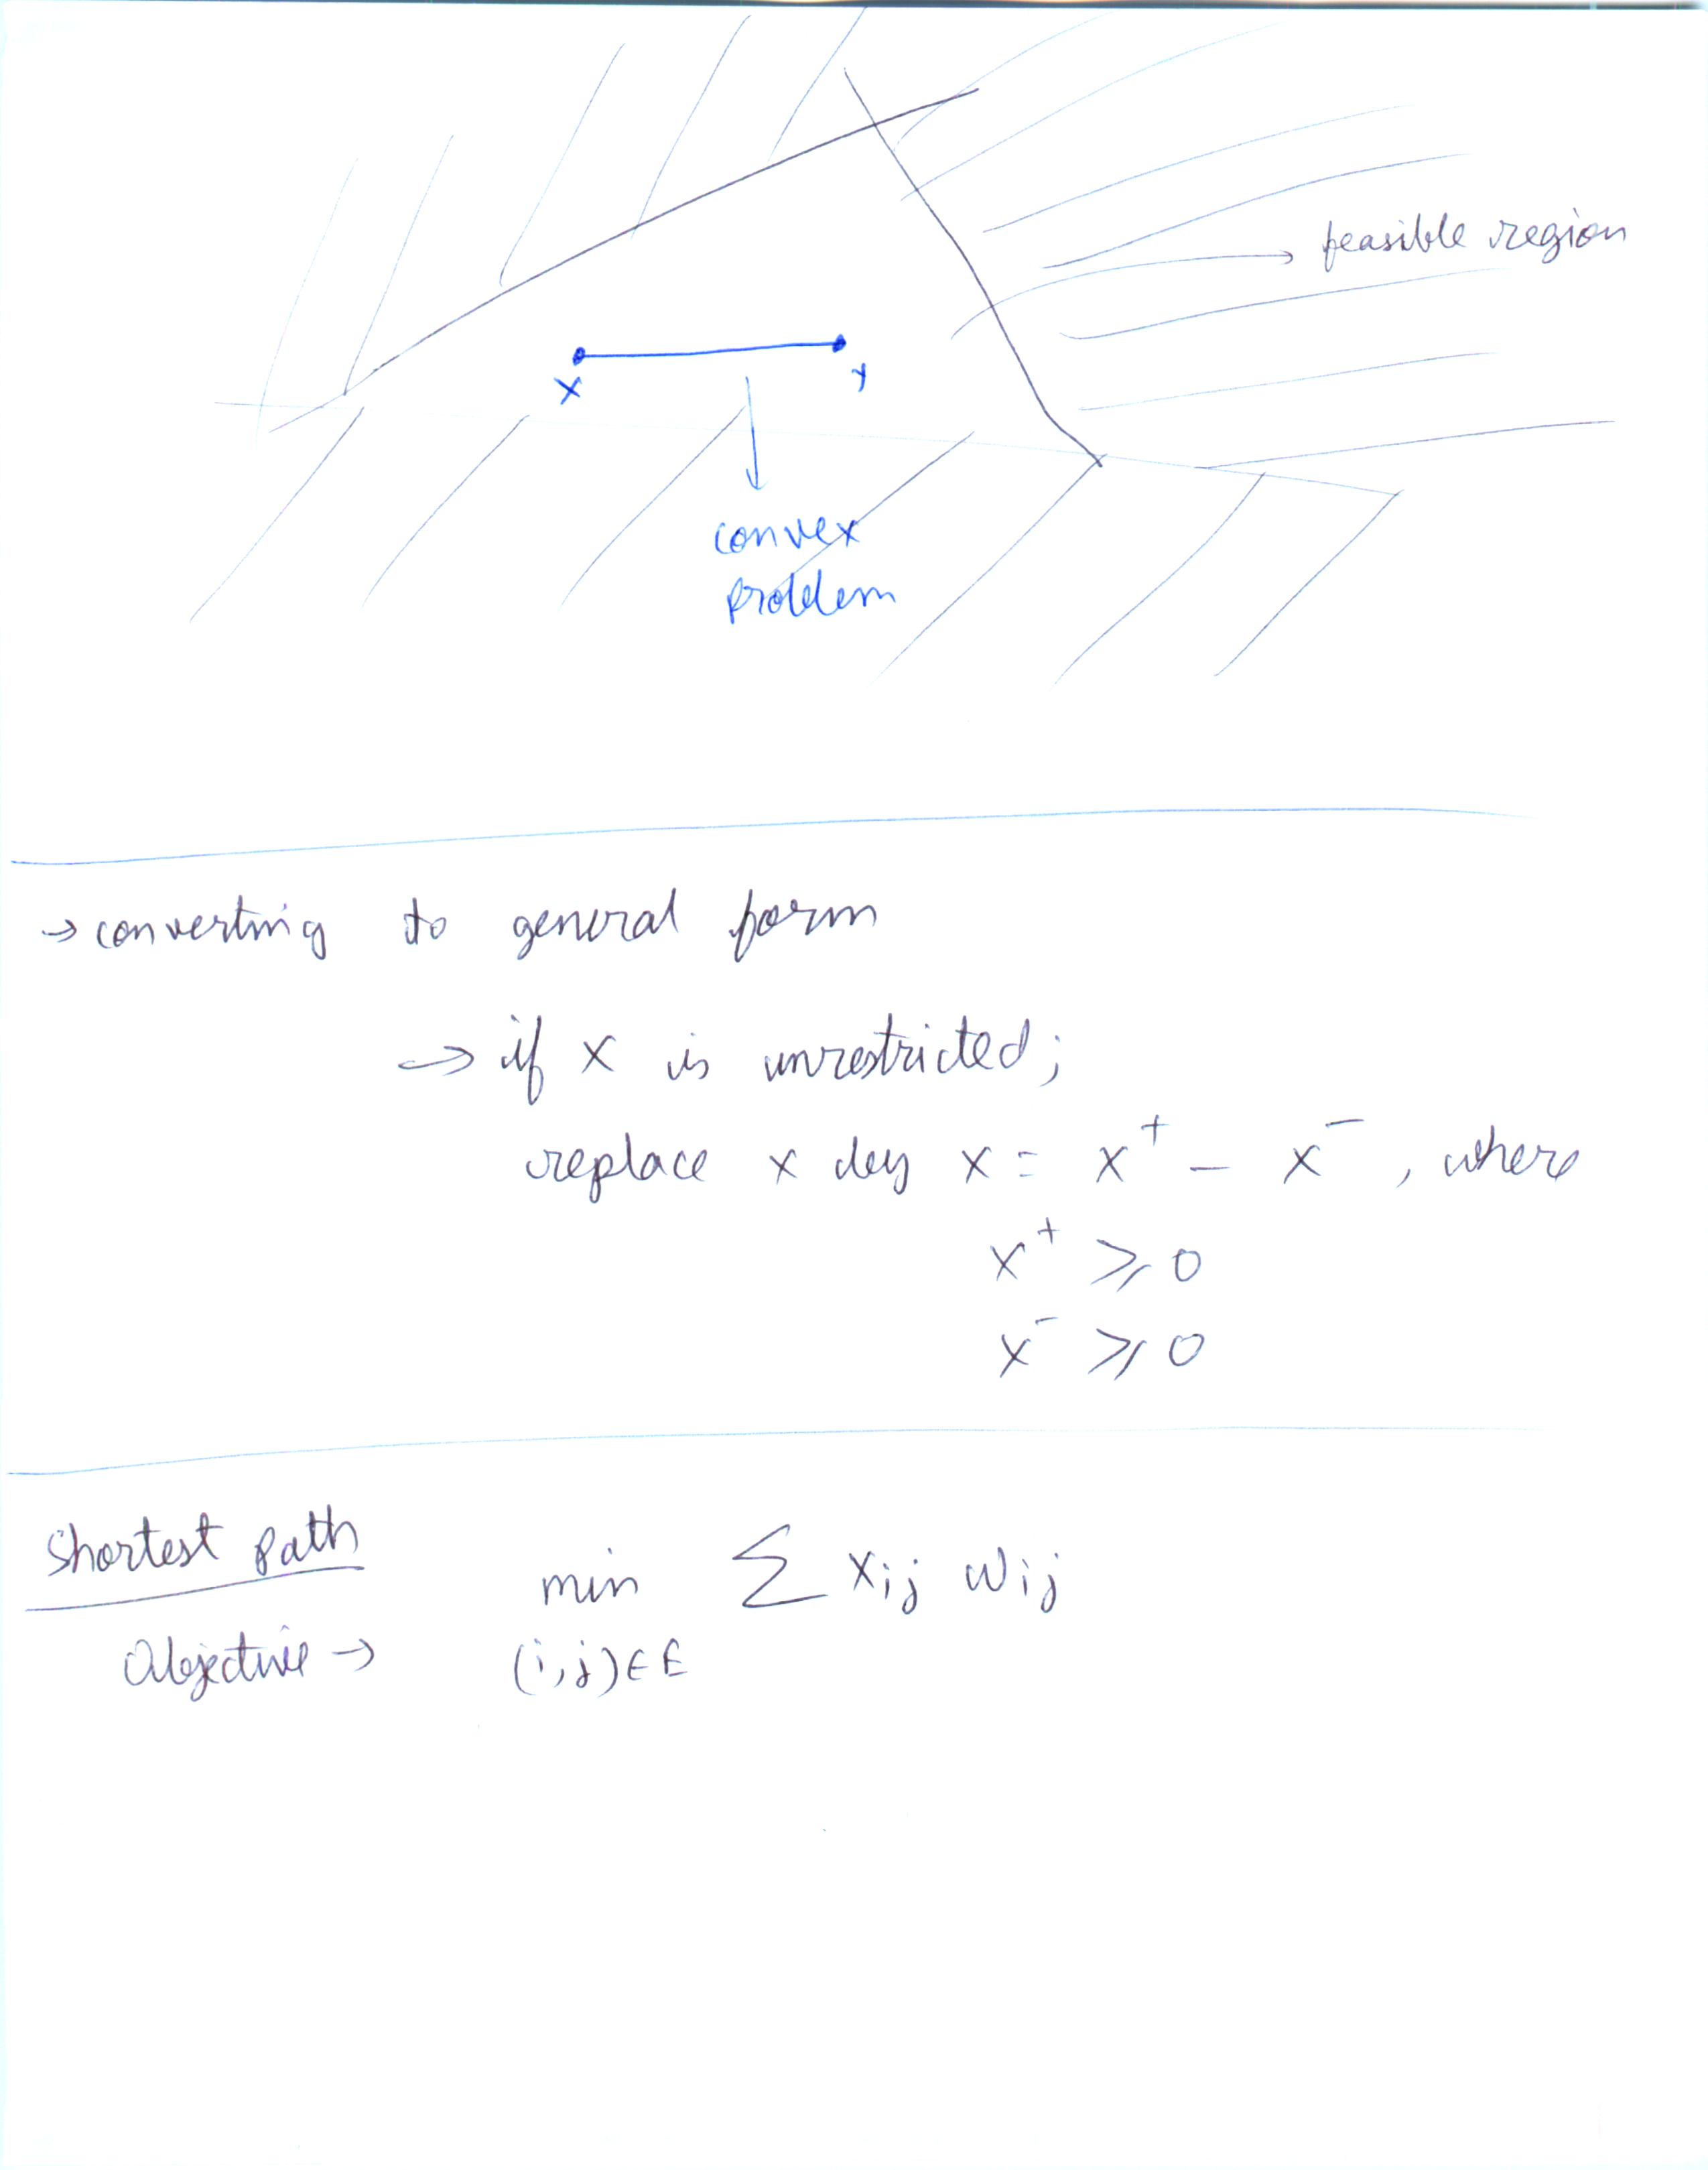 feasible region
x y
convex
problem
→ converting to general form
→ if x is unrestricted;
replace x by x = x⁺ - x⁻, where
x⁺ ≥ 0
x⁻ ≥ 0
Shortest path
min Σ xij wij
Objective → (i,j)∈E